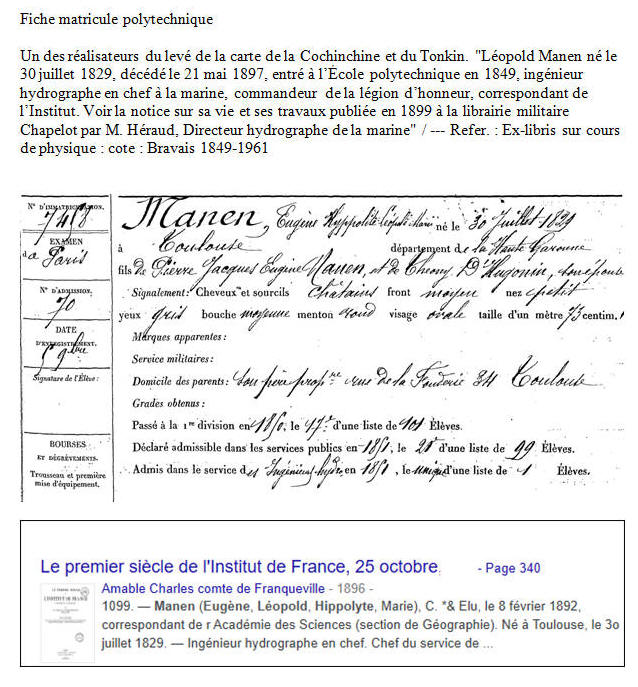 Fiche matricule polytechnique
Un des réalisateurs du levé de la carte de la Cochinchine et du Tonkin. "Léopold Manen né le
30 juillet 1829, décédé le 21 mai 1897, entré à l'École polytechnique en 1849, ingénieur
hydrographe en chef à la marine, commandeur de la légion d'honneur, correspondant de
l'Institut. Voir la notice sur sa vie et ses travaux publiée en 1899 à la librairie militaire
Chapelot par M. Héraud, Directeur hydrographe de la marine" / --- Refer. : Ex-libris sur cours
de physique : cote : Bravais 1849-1961
N° D'IMMATRICULATION.
7458
EXAMEN
à Paris
N° D'ADMISSION.
70
DATE
D'ENREGISTREMENT.
5 9bre
Signature de l'Élève :
BOURSES
ET DÉGRÈVEMENTS.
Trousseau et première
mise d'équipement.
Manen, Eugène Hyppolite Léopold Marie né le 30 Juillet 1829
à Toulouse département de la Haute Garonne
fils de Pierre Jacques Eugène Manen, et de D'Hugonin, son épouse
Signalement : Cheveux et sourcils châtains front moyen nez petit
yeux gris bouche moyenne menton rond visage ovale taille d'un mètre 73 centim.
Marques apparentes :
Service militaires :
Domicile des parents : son père propre rue de la Fonderie 34 Toulouse
Grades obtenus :
Passé à la 1re division en 1850, le 47e d'une liste de 101 Élèves.
Déclaré admissible dans les services publics en 1851, le 21e d'une liste de 99 Élèves.
Admis dans le service des Ingénieurs hydr. en 1851, le unique d'une liste de 1 Élèves.
Le premier siècle de l'Institut de France, 25 octobre - Page 340
Amable Charles comte de Franqueville - 1896 -
1099. — Manen (Eugène, Léopold, Hippolyte, Marie), C. *& Elu, le 8 février 1892,
correspondant de r Académie des Sciences (section de Géographie). Né à Toulouse, le 3o
juillet 1829. — Ingénieur hydrographe en chef. Chef du service de ...